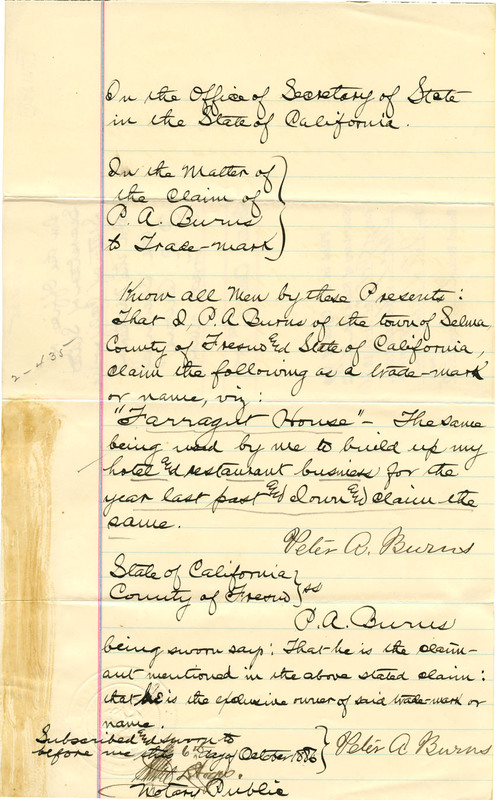 In the Office of Secretary of State
in the State of California.
In the Matter of
the Claim of
P. A. Burns
to Trade-mark
Know all Men by these Presents:
That I, P. A Burns of the town of Selma
County of Fresno and State of California,
claim the following as a trade-mark
or name, viz:
"Farragut House" - The same
being used by me to build up my
hotel and restaurant business for the
year last past and I own and claim the
same.
Peter A. Burns
State of California
County of Fresno } ss
P. A. Burns
being sworn say: That he is the claim-
ant mentioned in the above stated claim:
that he is the exclusive owner of said trade-mark or
name.
Subscribed and sworn to
before me this 6th day of October 1886
Peter A Burns
Notary Public
2-435